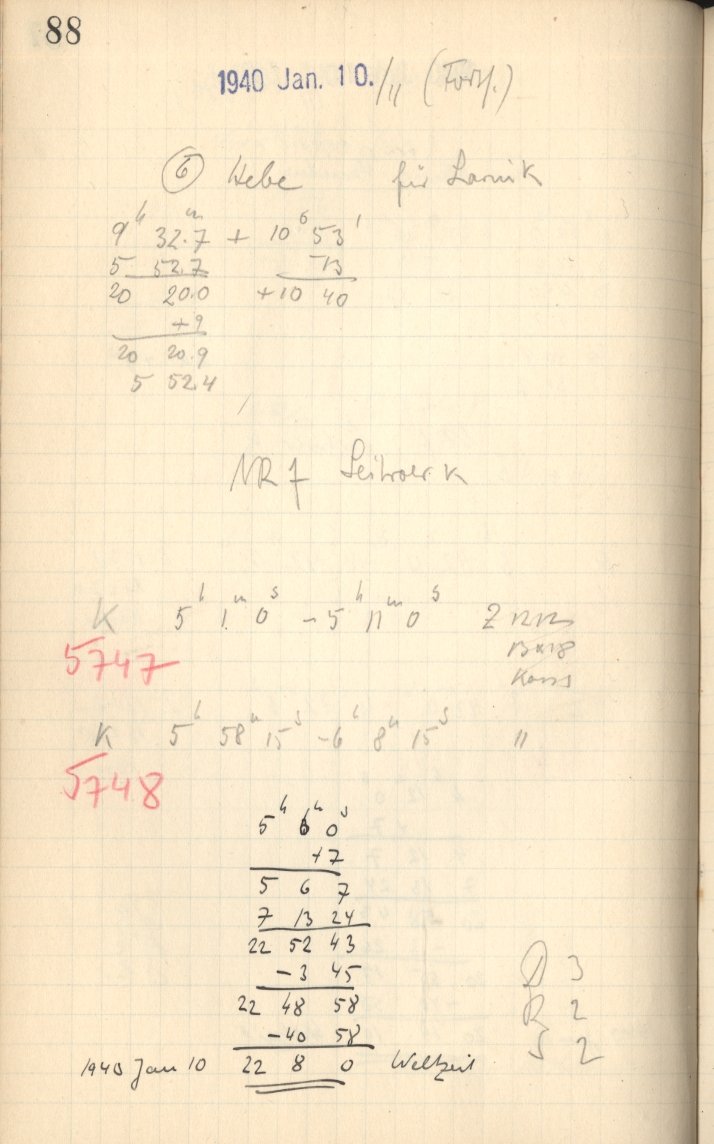 88
1940 Jan. 10./11 (Forts.)
⑥ Hebe für Larink
9ʰ 32.7ᵐ + 10° 53'
5 52.7 -13
20 20.0 +10 40
+9
20 20.9
5 52.4
K 5ʰ 1ᵐ 0ˢ - 5ʰ 11ᵐ 0ˢ
5747
K 5ʰ 58ᵐ 15ˢ - 6ʰ 8ᵐ 15ˢ "
5748
5ʰ 6ᵐ 0ˢ
+7
5 6 7
7 13 24
22 52 43
-3 45
22 48 58
-40 58
1940 Jan 10 22 8 0 Weltzeit
D 3
R 2
S 2